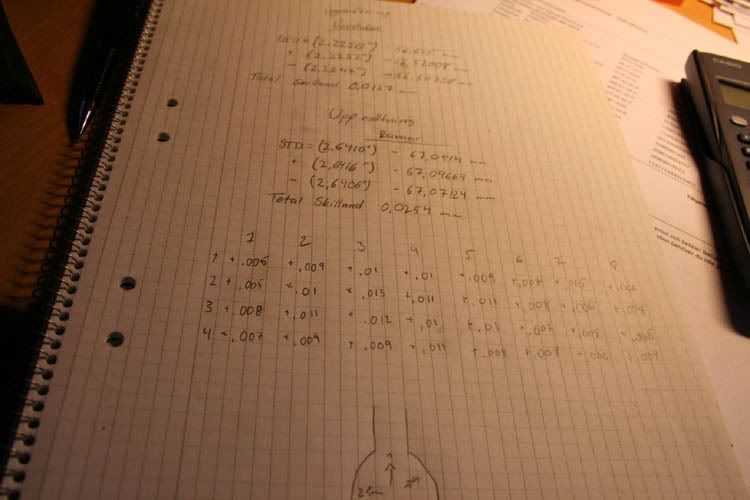 Uppmätning
STD = (2,2250") - 56,515 mm
+ (2,2252") - 56,52008 mm
- (2,2247") - 56,50738 mm
Total Skillnad 0,0127 mm
Uppmätning
Ramar
STD = (2,6410") - 67,0814 mm
+ (2,6416") - 67,09664 mm
- (2,6406") - 67,07124 mm
Total Skillnad 0,0254 mm
1 2 3 4 5 6 7 8
1 +.005 +.009 +.01 +.01 +.009 +.007 +.005 +.006
2 +.005 +.01 +.013 +.011 +.011 +.008 +.006 +.008
3 +.008 +.011 +.012 +.01 +.01 +.007 +.005 +.005
4 +.007 +.009 +.009 +.011 +.008 +.008 +.006 +.008
CASIO